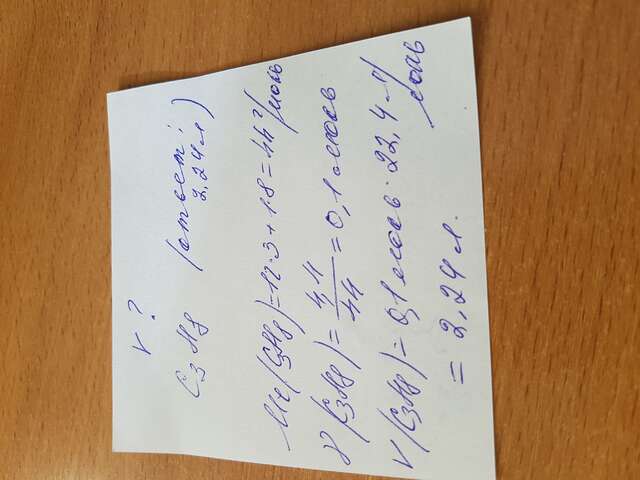 V ?
C3H8 (ответ: 2,24 л)
Mr(C3H8) = 12·3 + 1·8 = 44 г/моль
ν(C3H8) = 4,4/44 = 0,1 моль
V(C3H8) = 0,1 моль · 22,4 л/моль
= 2,24 л.